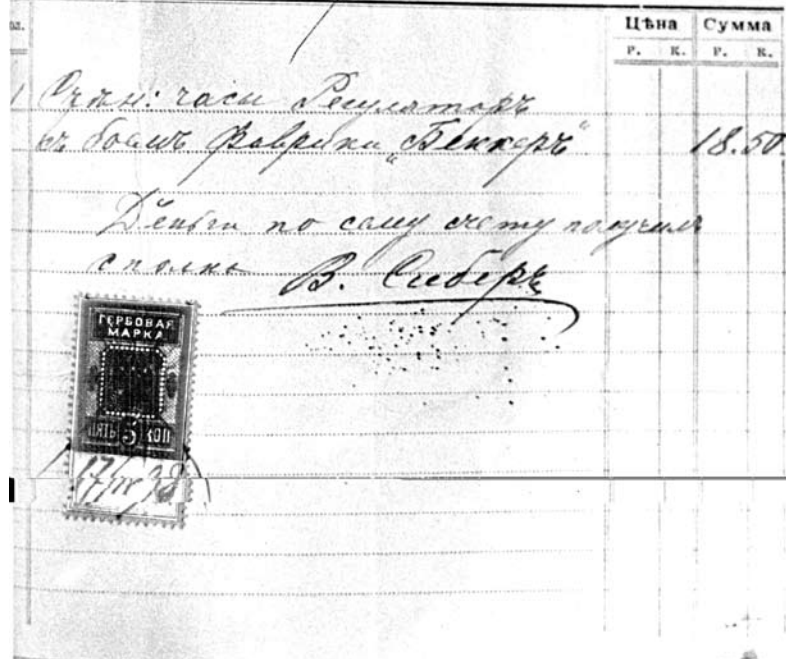 Цѣна Сумма
Р. К. Р. К.
1 Стѣн: часы Регуляторъ
съ боемъ фабрики „Беккеръ“ 18.50.
Деньги по сему счету получилъ
сполна В. Сиберъ
ГЕРБОВАЯ
МАРКА
ПЯТЬ 5 КОП
17/IV 98